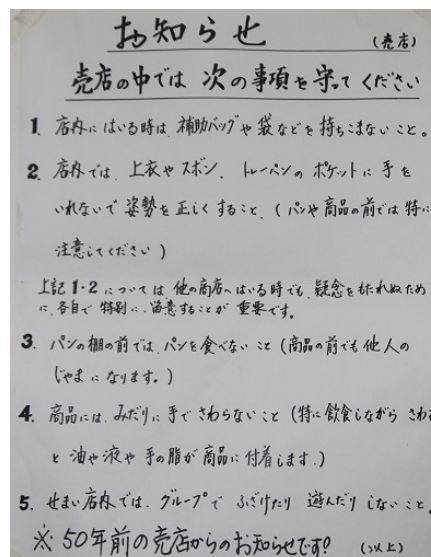 お知らせ (売店)
売店の中では 次の事項を守ってください
1. 店内にはいる時は、補助バッグや袋などを持ちこまないこと。
2. 店内では、上衣やズボン、トレーパンのポケットに手を
いれないで姿勢を正しくすること、(パンや商品の前では特に
注意してください)
上記1・2については他の商店へはいる時でも、疑念をもたれぬため
に、各自で特別に、留意することが重要です。
3. パンの棚の前では、パンを食べないこと(商品の前でも他人の
じゃまになります。)
4. 商品には、みだりに手でさわらないこと(特に飲食しながらさわ
と油や液や手の脂が商品に付着します。)
5. せまい店内では、グループでふざけたり遊んだりしないこと。
※50年前の売店からのお知らせです! (以上)